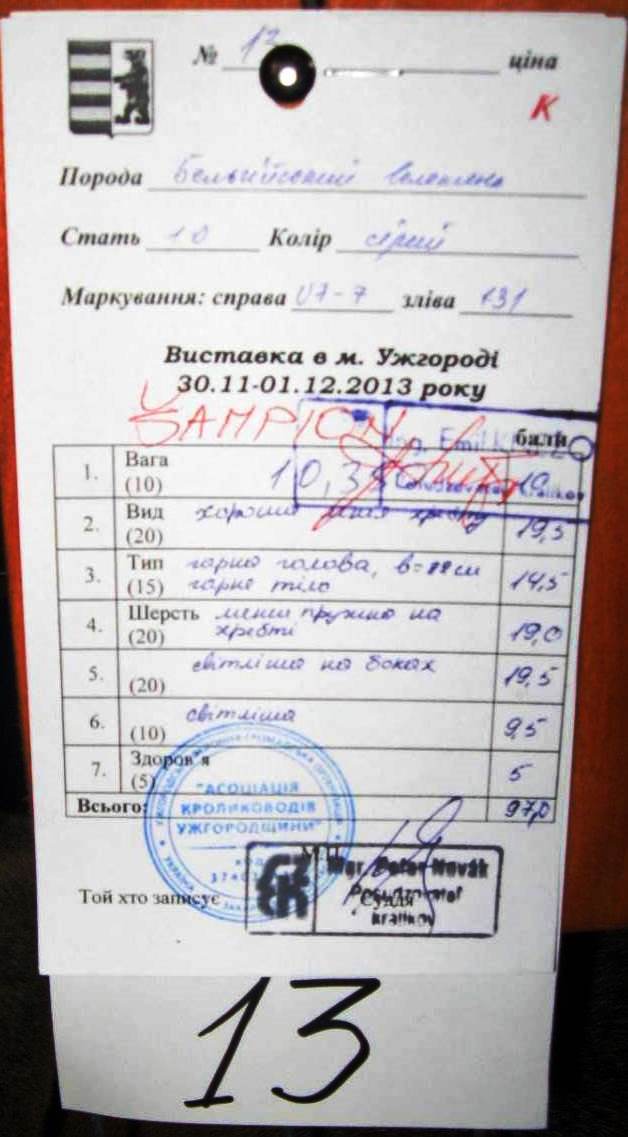 № 13 ціна
К
Порода Бельгійський
Стать 1.0 Колір сірий
Маркування: справа U7-7 зліва 131
Виставка в м. Ужгороді
30.11-01.12.2013 року
ŠAMPION
бали
1. Вага (10) 10,3
2. Вид (20) хороша лінія хребту 19,5
3. Тип гарна голова, в= см
(15) гарне тіло 14,5
4. Шерсть менш пружна на
(20) хребті 19,0
5. (20) світліша на боках 19,5
6. (10) світліша 9,5
7. Здоров'я (5) 5
Всього: 97,0
"АСОЦІАЦІЯ
КРОЛИКОВОДІВ
УЖГОРОДЩИНИ"
М.П.
Mgr. Peter Novák
Posudzovateľ
králikov
Той хто записує Суддя
13